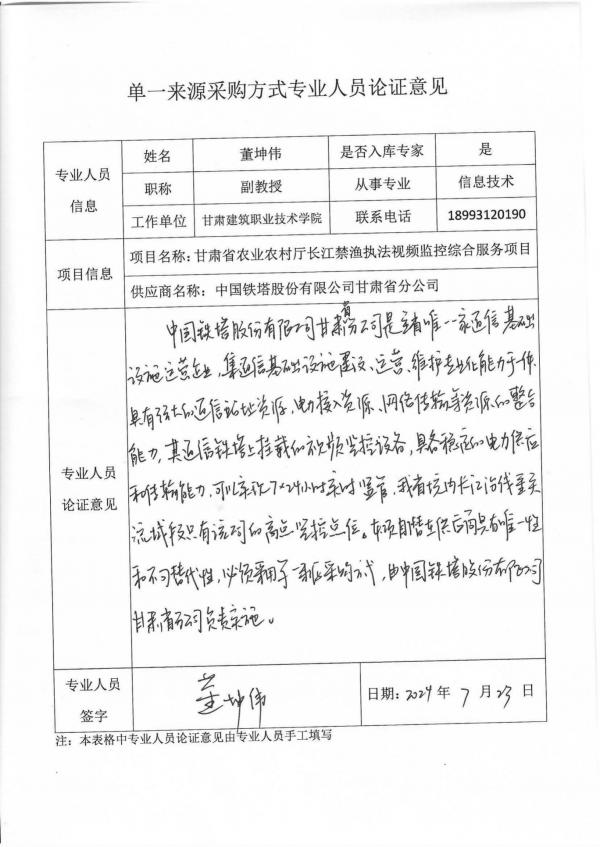 单一来源采购方式专业人员论证意见
专业人员信息 姓名 董坤伟 是否入库专家 是
职称 副教授 从事专业 信息技术
工作单位 甘肃建筑职业技术学院 联系电话 18993120190
项目信息 项目名称：甘肃省农业农村厅长江禁渔执法视频监控综合服务项目
供应商名称：中国铁塔股份有限公司甘肃省分公司
专业人员论证意见
中国铁塔股份有限公司甘肃省分公司是我省唯一一家通信基础
设施运营企业，集通信基础设施建设、运营、维护专业化能力于一体，
具有强大的通信站址资源，电力接入资源、网络传输等资源的整合
能力，其通信铁塔上挂载的视频监控设备，具备稳定的电力供应
和传输能力，可以实现7×24小时实时监管，我省境内长江沿线重要
流域段只有该公司的高点监控点位。本项目供应商具有唯一性
和不可替代性，必须采用单一来源采购方式，由中国铁塔股份有限公司
甘肃省分公司负责实施。
专业人员签字 董坤伟 日期：2024年 7 月 23 日
注：本表格中专业人员论证意见由专业人员手工填写